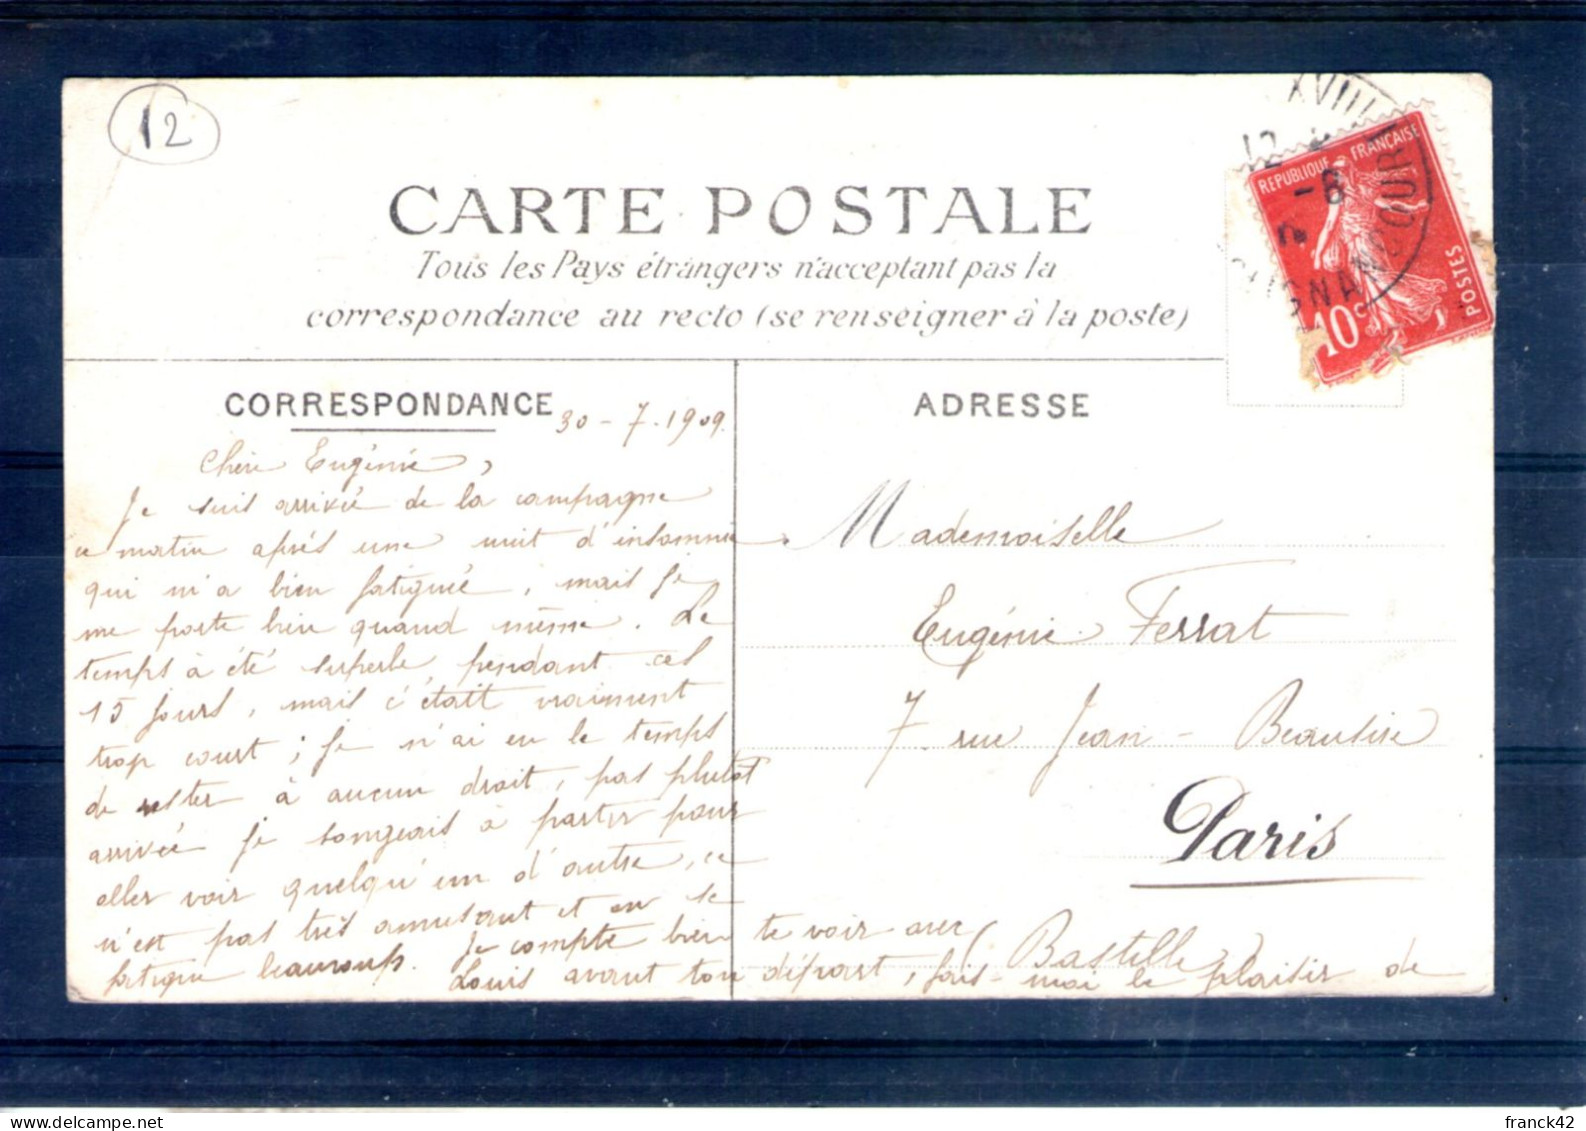 12
CARTE POSTALE
Tous les Pays étrangers n'acceptant pas la
correspondance au recto (se renseigner à la poste)
REPUBLIQUE FRANÇAISE
POSTES
10c
XVIII
12
-8
CORRESPONDANCE
30-7-1909.
Chère Eugénie,
Je suis arrivée de la campagne
ce matin après une nuit d'insomnie
qui m'a bien fatiguée, mais je
me porte bien quand même. Le
temps à été superbe pendant ces
15 jours, mais c'était vraiment
trop court; je n'ai eu le temps
de rester à aucun droit, pas plutot
arrivée je songeais à partir pour
aller voir quelqu'un d'autre, ce
n'est pas très amusant et on se
fatigue beaucoup. Je compte bien te voir avec
Louis avant ton départ, fais-moi le plaisir de
ADRESSE
Mademoiselle
Eugénie Ferrat
7 rue Jean-Beausire
Paris
(Bastille)
franck42